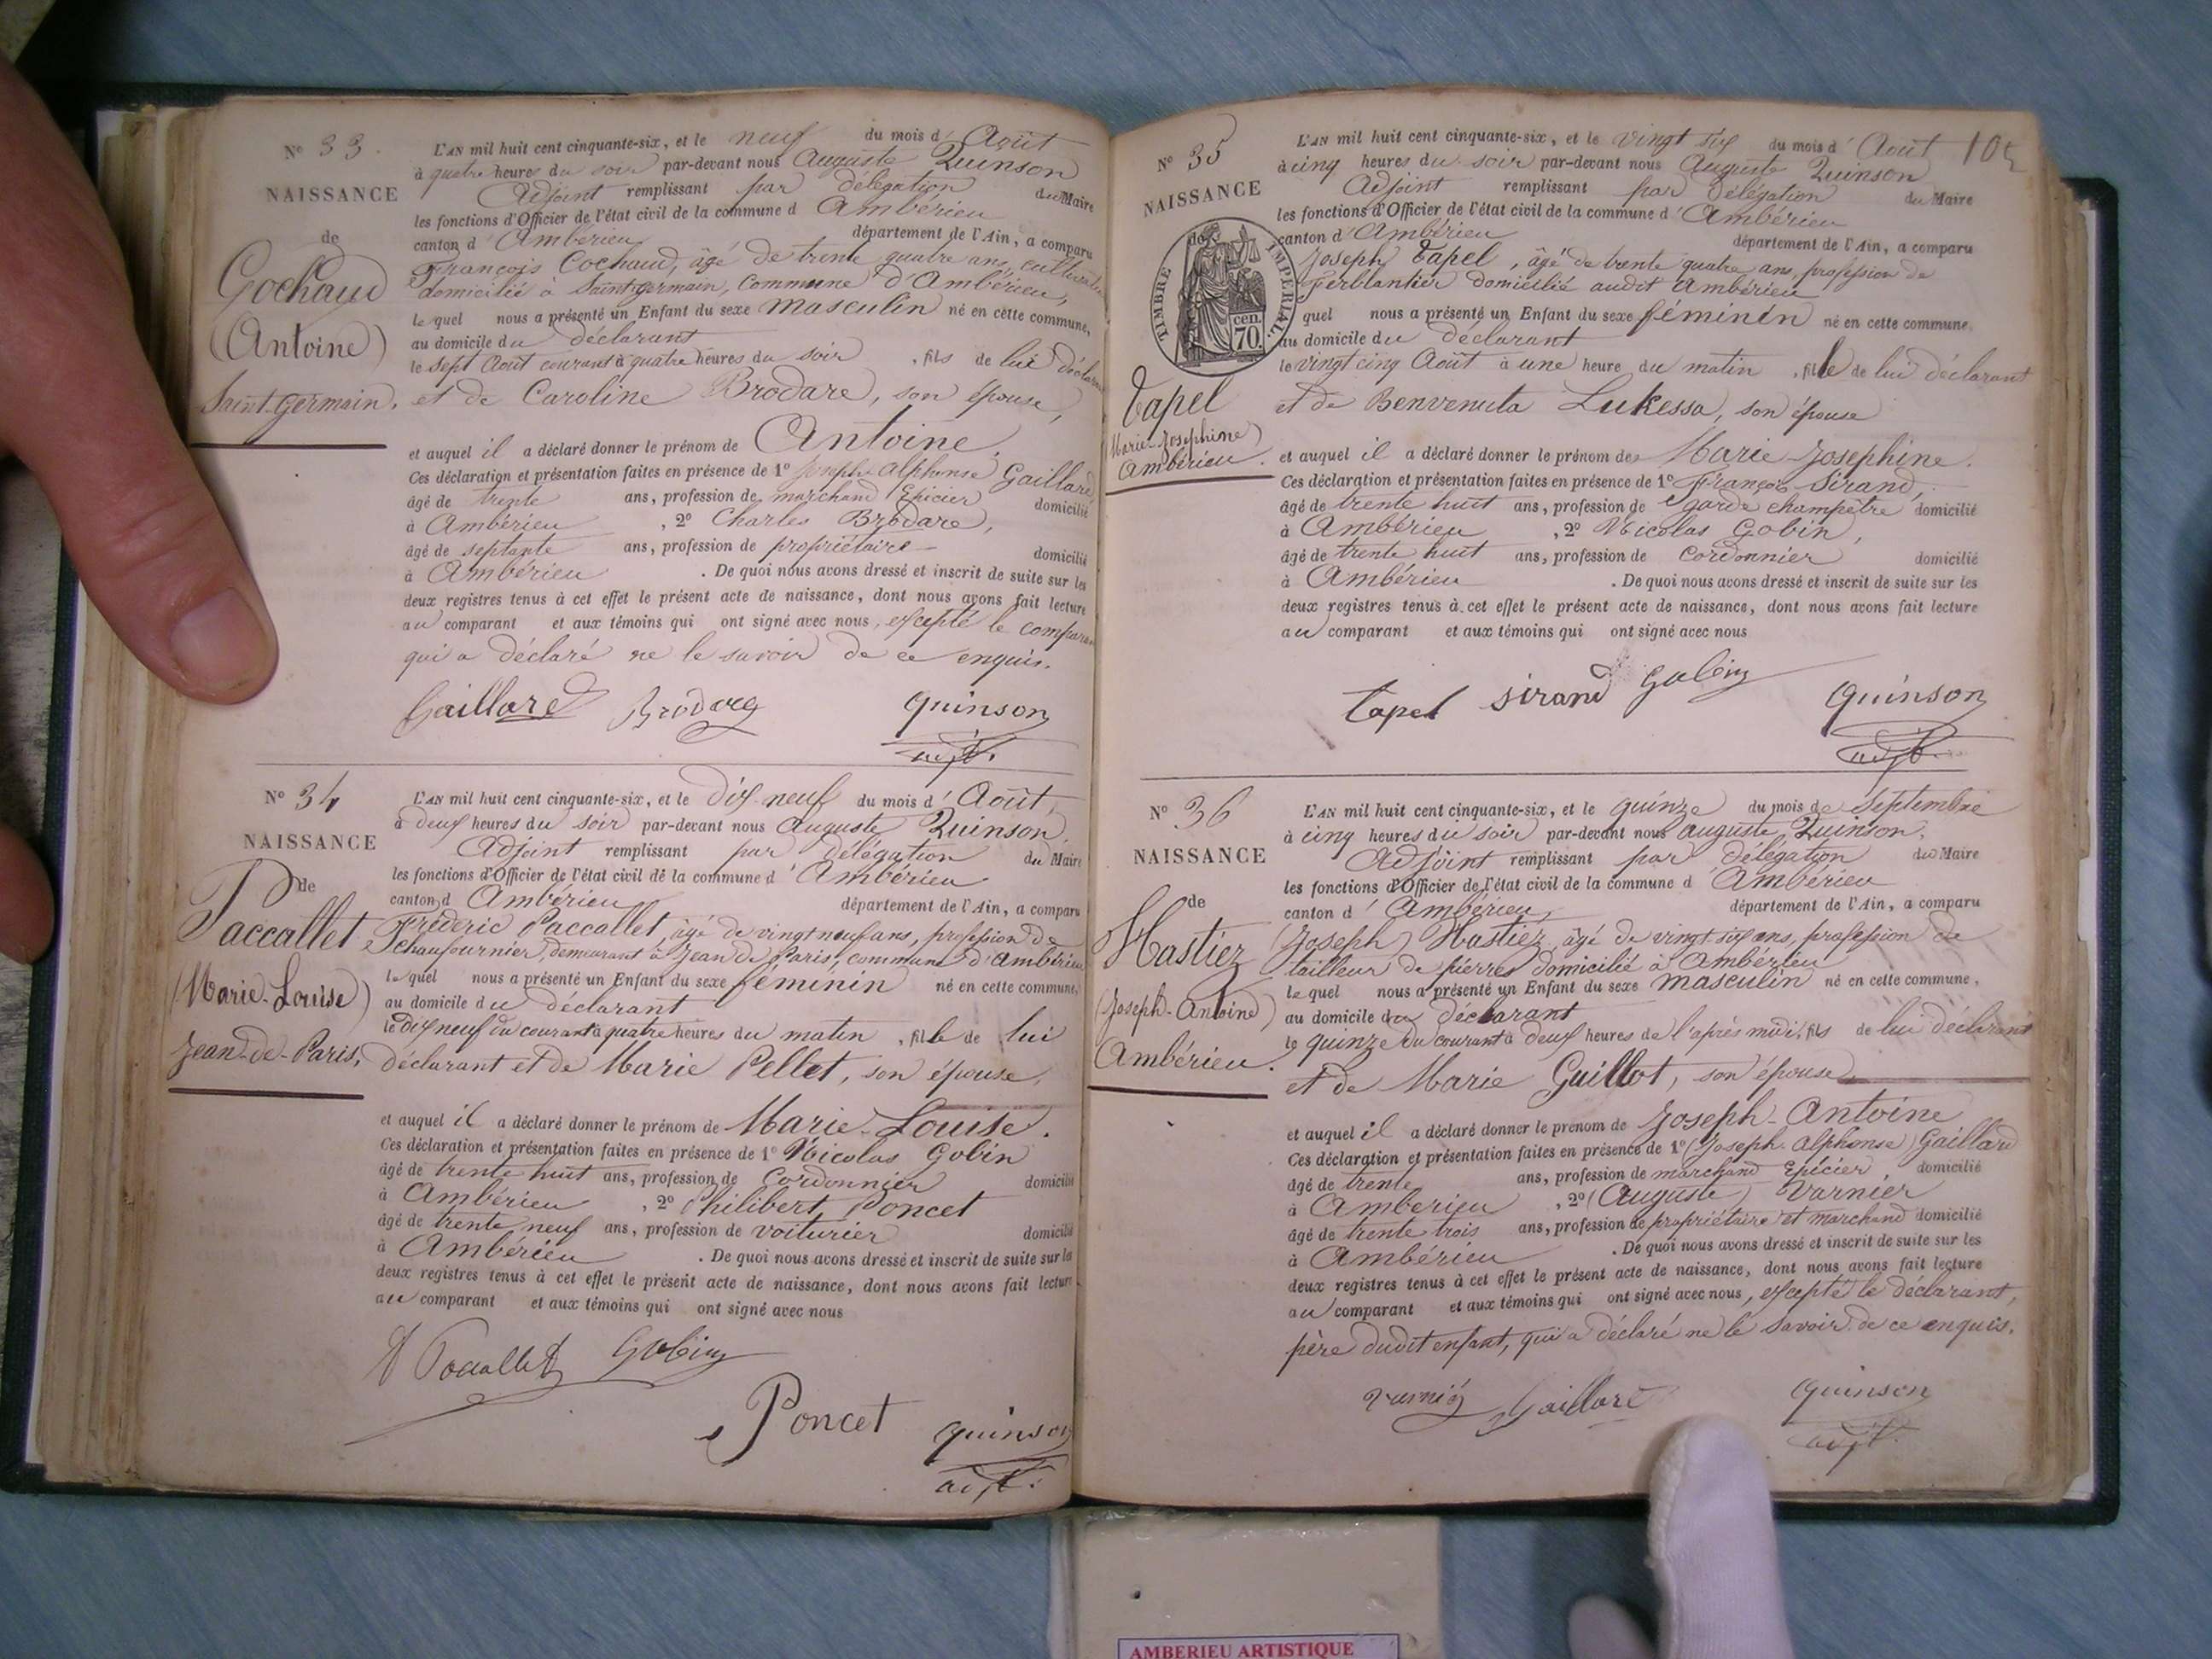 N° 33.
NAISSANCE
de
Cochaud
(Antoine)
Saint-Germain.
L'AN mil huit cent cinquante-six, et le neuf du mois d'Août
à quatre heures du soir par-devant nous Auguste Quinson
Adjoint remplissant par délégation du Maire
les fonctions d'Officier de l'état civil de la commune d'Ambérieu
canton d'Ambérieu département de l'Ain, a comparu
François Cochaud, âgé de trente quatre ans, cultivateur
domicilié à Saint-germain, commune d'Ambérieu,
lequel nous a présenté un Enfant du sexe masculin né en cette commune,
au domicile du déclarant
le sept Août courant à quatre heures du soir, fils de lui déclarant
et de Caroline Brodare, son épouse,
et auquel il a déclaré donner le prénom de Antoine.
Ces déclaration et présentation faites en présence de 1° Joseph Alphonse Gaillard
âgé de trente ans, profession de marchand Epicier domicilié
à Ambérieu, 2° Charles Brodare,
âgé de septante ans, profession de propriétaire domicilié
à Ambérieu. De quoi nous avons dressé et inscrit de suite sur les
deux registres tenus à cet effet le présent acte de naissance, dont nous avons fait lecture
au comparant et aux témoins qui ont signé avec nous, excepté le comparant
qui a déclaré ne le savoir de ce enquis.
Gaillard Brodare quinson
adjt.
N° 34
NAISSANCE
de
Paccallet
(Marie-Louise)
Jean-de-Paris.
L'AN mil huit cent cinquante-six, et le dix neuf du mois d'Août,
à deux heures du soir par-devant nous Auguste Quinson,
Adjoint remplissant par délégation du Maire
les fonctions d'Officier de l'état civil de la commune d'Ambérieu
canton d'Ambérieu département de l'Ain, a comparu
Fréderic Paccallet, âgé de vingt neuf ans, profession de
chaufournier, demeurant à Jean de Paris, commune d'Ambérieu
lequel nous a présenté un Enfant du sexe féminin né en cette commune,
au domicile du déclarant
le dix neuf du courant à quatre heures du matin, fille de lui
déclarant et de Marie Pellet, son épouse,
et auquel il a déclaré donner le prénom de Marie-Louise.
Ces déclaration et présentation faites en présence de 1° Nicolas Gobin
âgé de trente huit ans, profession de Cordonnier domicilié
à Ambérieu, 2° Philibert Poncet
âgé de trente neuf ans, profession de voiturier domicilié
à Ambérieu. De quoi nous avons dressé et inscrit de suite sur les
deux registres tenus à cet effet le présent acte de naissance, dont nous avons fait lecture
au comparant et aux témoins qui ont signé avec nous
Paccallet Gobin
Poncet quinson
adjt.
105
N° 35
NAISSANCE
de
TIMBRE IMPERIAL
70 cen.
Tapel
(Marie-Josephine)
Ambérieu.
L'AN mil huit cent cinquante-six, et le vingt six du mois d'Août
à cinq heures du soir par-devant nous Auguste Quinson
Adjoint remplissant par délégation du Maire
les fonctions d'Officier de l'état civil de la commune d'Ambérieu
canton d'Ambérieu département de l'Ain, a comparu
Joseph Tapel, âgé de trente quatre ans, profession de
Ferblantier domicilié audit Ambérieu
quel nous a présenté un Enfant du sexe féminin né en cette commune,
au domicile du déclarant
le vingt cinq Août à une heure du matin, fille de lui déclarant
et de Benvenuta Lukessa, son épouse
et auquel il a déclaré donner le prénom des Marie-Josephine.
Ces déclaration et présentation faites en présence de 1° François Sirand,
âgé de trente huit ans, profession de garde champetre domicilié
à Ambérieu, 2° Nicolas Gobin,
âgé de trente huit ans, profession de Cordonnier domicilié
à Ambérieu. De quoi nous avons dressé et inscrit de suite sur les
deux registres tenus à cet effet le présent acte de naissance, dont nous avons fait lecture
au comparant et aux témoins qui ont signé avec nous
tapel sirand Gobin quinson
adjt.
N° 36
NAISSANCE
de
Hastiez
(Joseph-Antoine)
Ambérieu.
L'AN mil huit cent cinquante-six, et le quinze du mois de Septembre
à cinq heures du soir par-devant nous auguste Quinson,
Adjoint remplissant par délégation du Maire
les fonctions d'Officier de l'état civil de la commune d'Ambérieu
canton d'Ambérieu, département de l'Ain, a comparu
(Joseph) Hastiez, âgé de vingt six ans, profession de
tailleur de pierres domicilié à Ambérieu
lequel nous a présenté un Enfant du sexe masculin né en cette commune,
au domicile du déclarant
le quinze du courant à deux heures de l'après midi, fils de lui déclarant
et de Marie Guillot, son épouse
et auquel il a déclaré donner le prénom de Joseph-Antoine
Ces déclaration et présentation faites en présence de 1° (Joseph-Alphonse) Gaillard
âgé de trente ans, profession de marchand Epicier domicilié
à Amberieu, 2° (Auguste) Varnier
âgé de trente trois ans, profession de propriétaire et marchand domicilié
à Ambérieu. De quoi nous avons dressé et inscrit de suite sur les
deux registres tenus à cet effet le présent acte de naissance, dont nous avons fait lecture
au comparant et aux témoins qui ont signé avec nous, excepté le déclarant,
père dudit enfant, qui a déclaré ne le savoir de ce enquis.
varnier Gaillard quinson
adjt.
AMBERIEU ARTISTIQUE